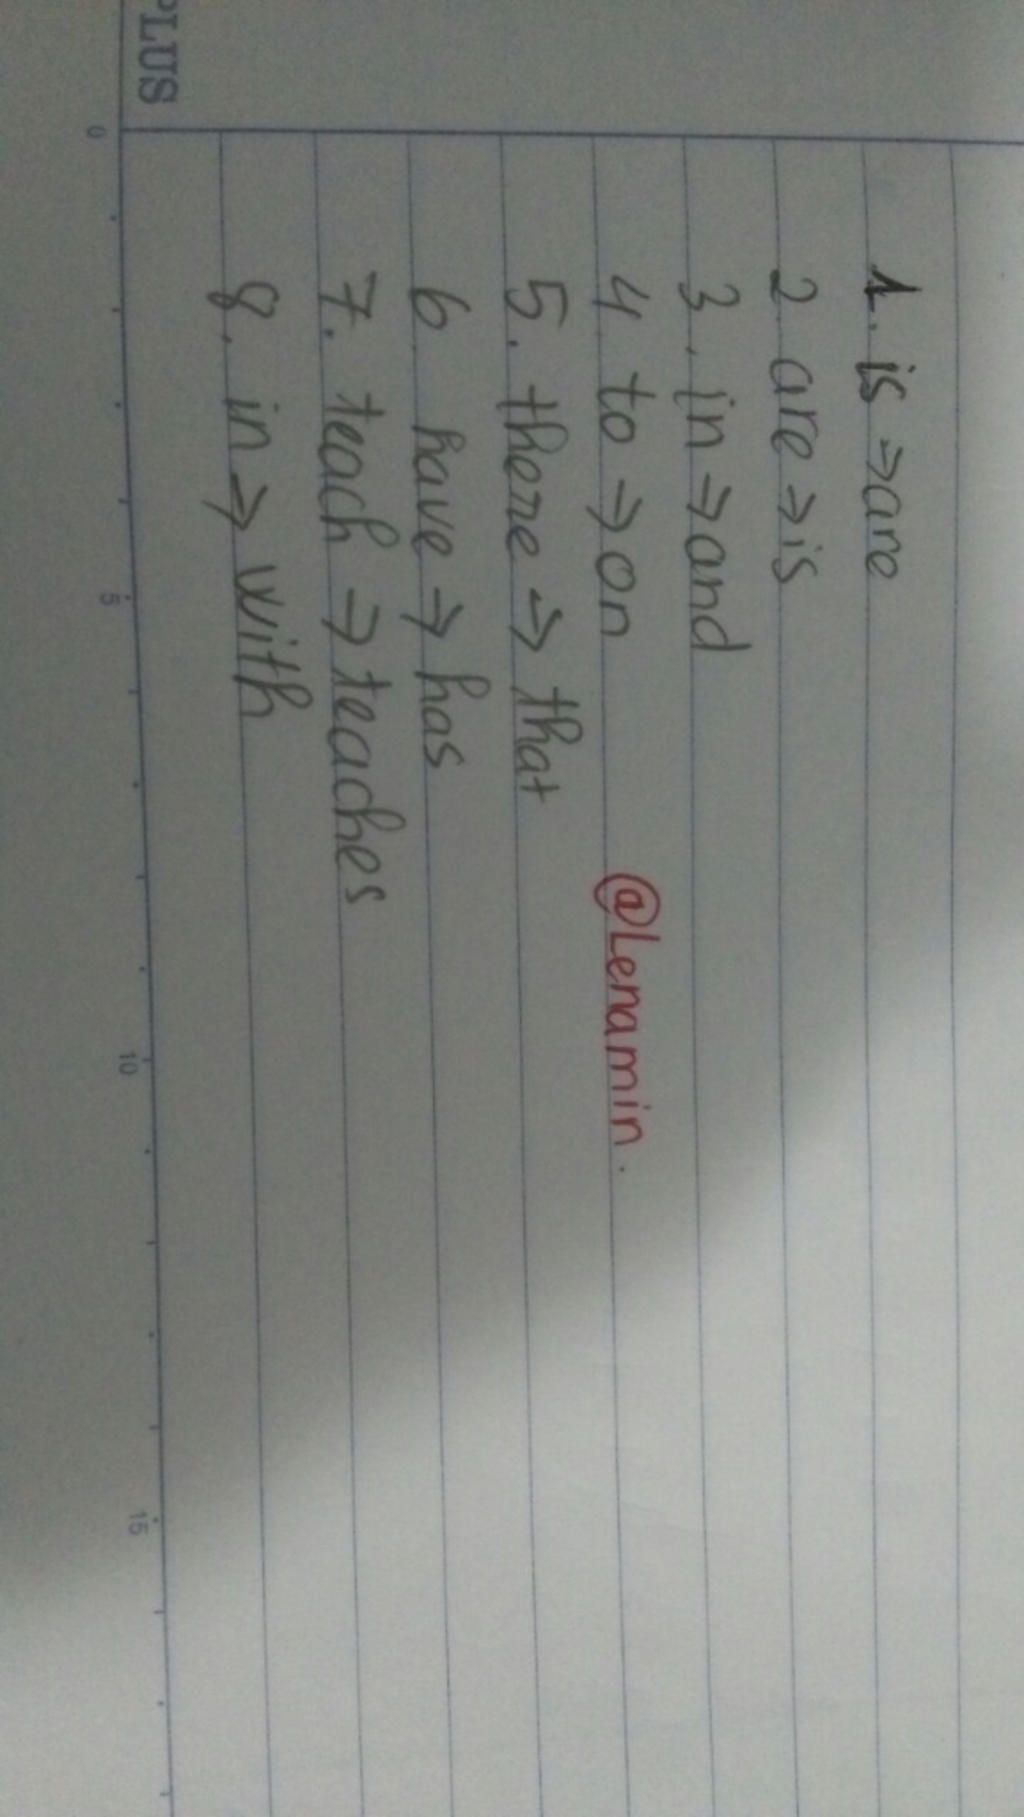 PLUS
1. is ⇒ are
2 are ⇒ is
3. in ⇒ and
4 to ⇒ on
@Lenamin.
5. there ⇒ that
6 have ⇒ has
7. teach ⇒ teaches
8. in ⇒ with
0 5 10 15